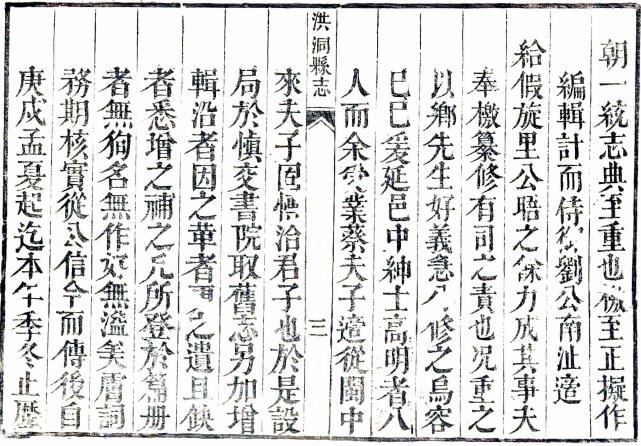 朝一統志典至重也檄至正擬作
編輯計而侍御劉公南沚適
給假旋里公晤之餘力成其事夫
奉檄纂修有司之責也况重之
以鄉先生好義急公修之烏容
已已爰延邑中紳士高明者八
人而余受業蔡夫子適從閩中
洪洞縣志
三
來夫子固洽君子也於是設
局於慎交書院取舊志另加增
輯沿者因之革者之遺且缺
者悉增之補之凡所登於篇册
者無狥名無作好無濫美膚詞
務期核實從公信今而傳後自
庚戌孟夏起迄本年季冬止歷